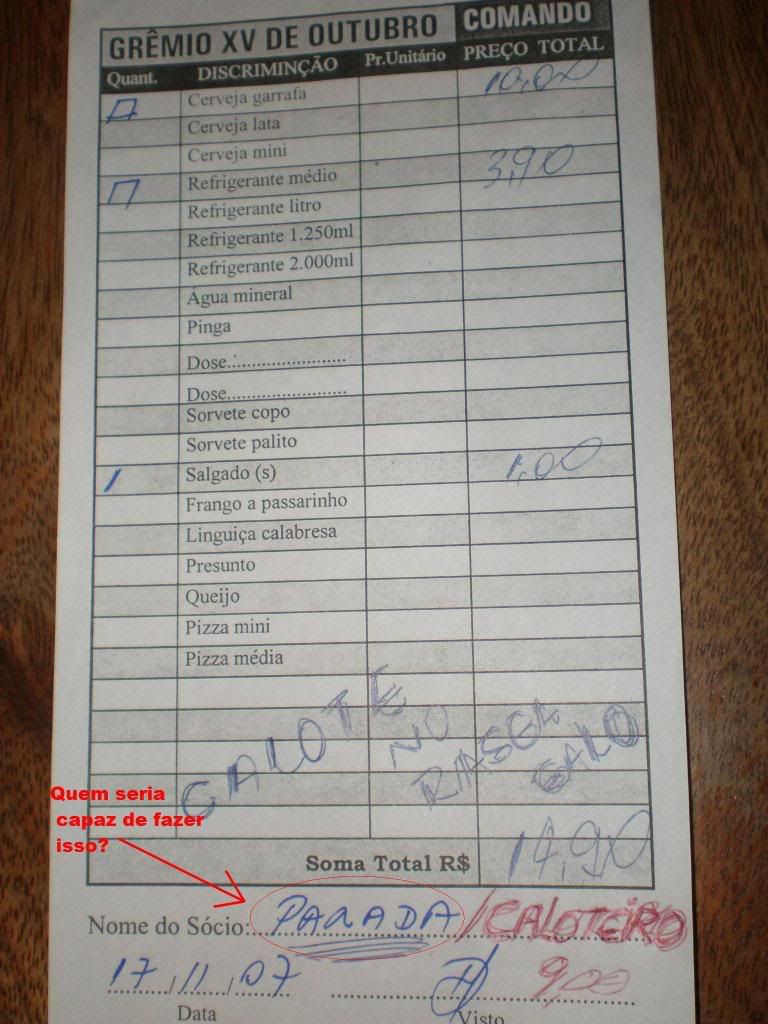 GRÊMIO XV DE OUTUBRO COMANDO
Quant. DISCRIMINÇÃO Pr.Unitário PREÇO TOTAL
Cerveja garrafa 10,00
Cerveja lata
Cerveja mini
Refrigerante médio 3,90
Refrigerante litro
Refrigerante 1.250ml
Refrigerante 2.000ml
Água mineral
Pinga
Dose..........................
Dose..........................
Sorvete copo
Sorvete palito
1 Salgado (s) 1,00
Frango a passarinho
Linguiça calabresa
Presunto
Queijo
Pizza mini
Pizza média
CALOTE NO RASGA GALO
Quem seria
capaz de fazer
isso?
Soma Total R$ 14,90
Nome do Sócio: PARADA / CALOTEIRO
17 / 11 / 07 9,00
Data Visto